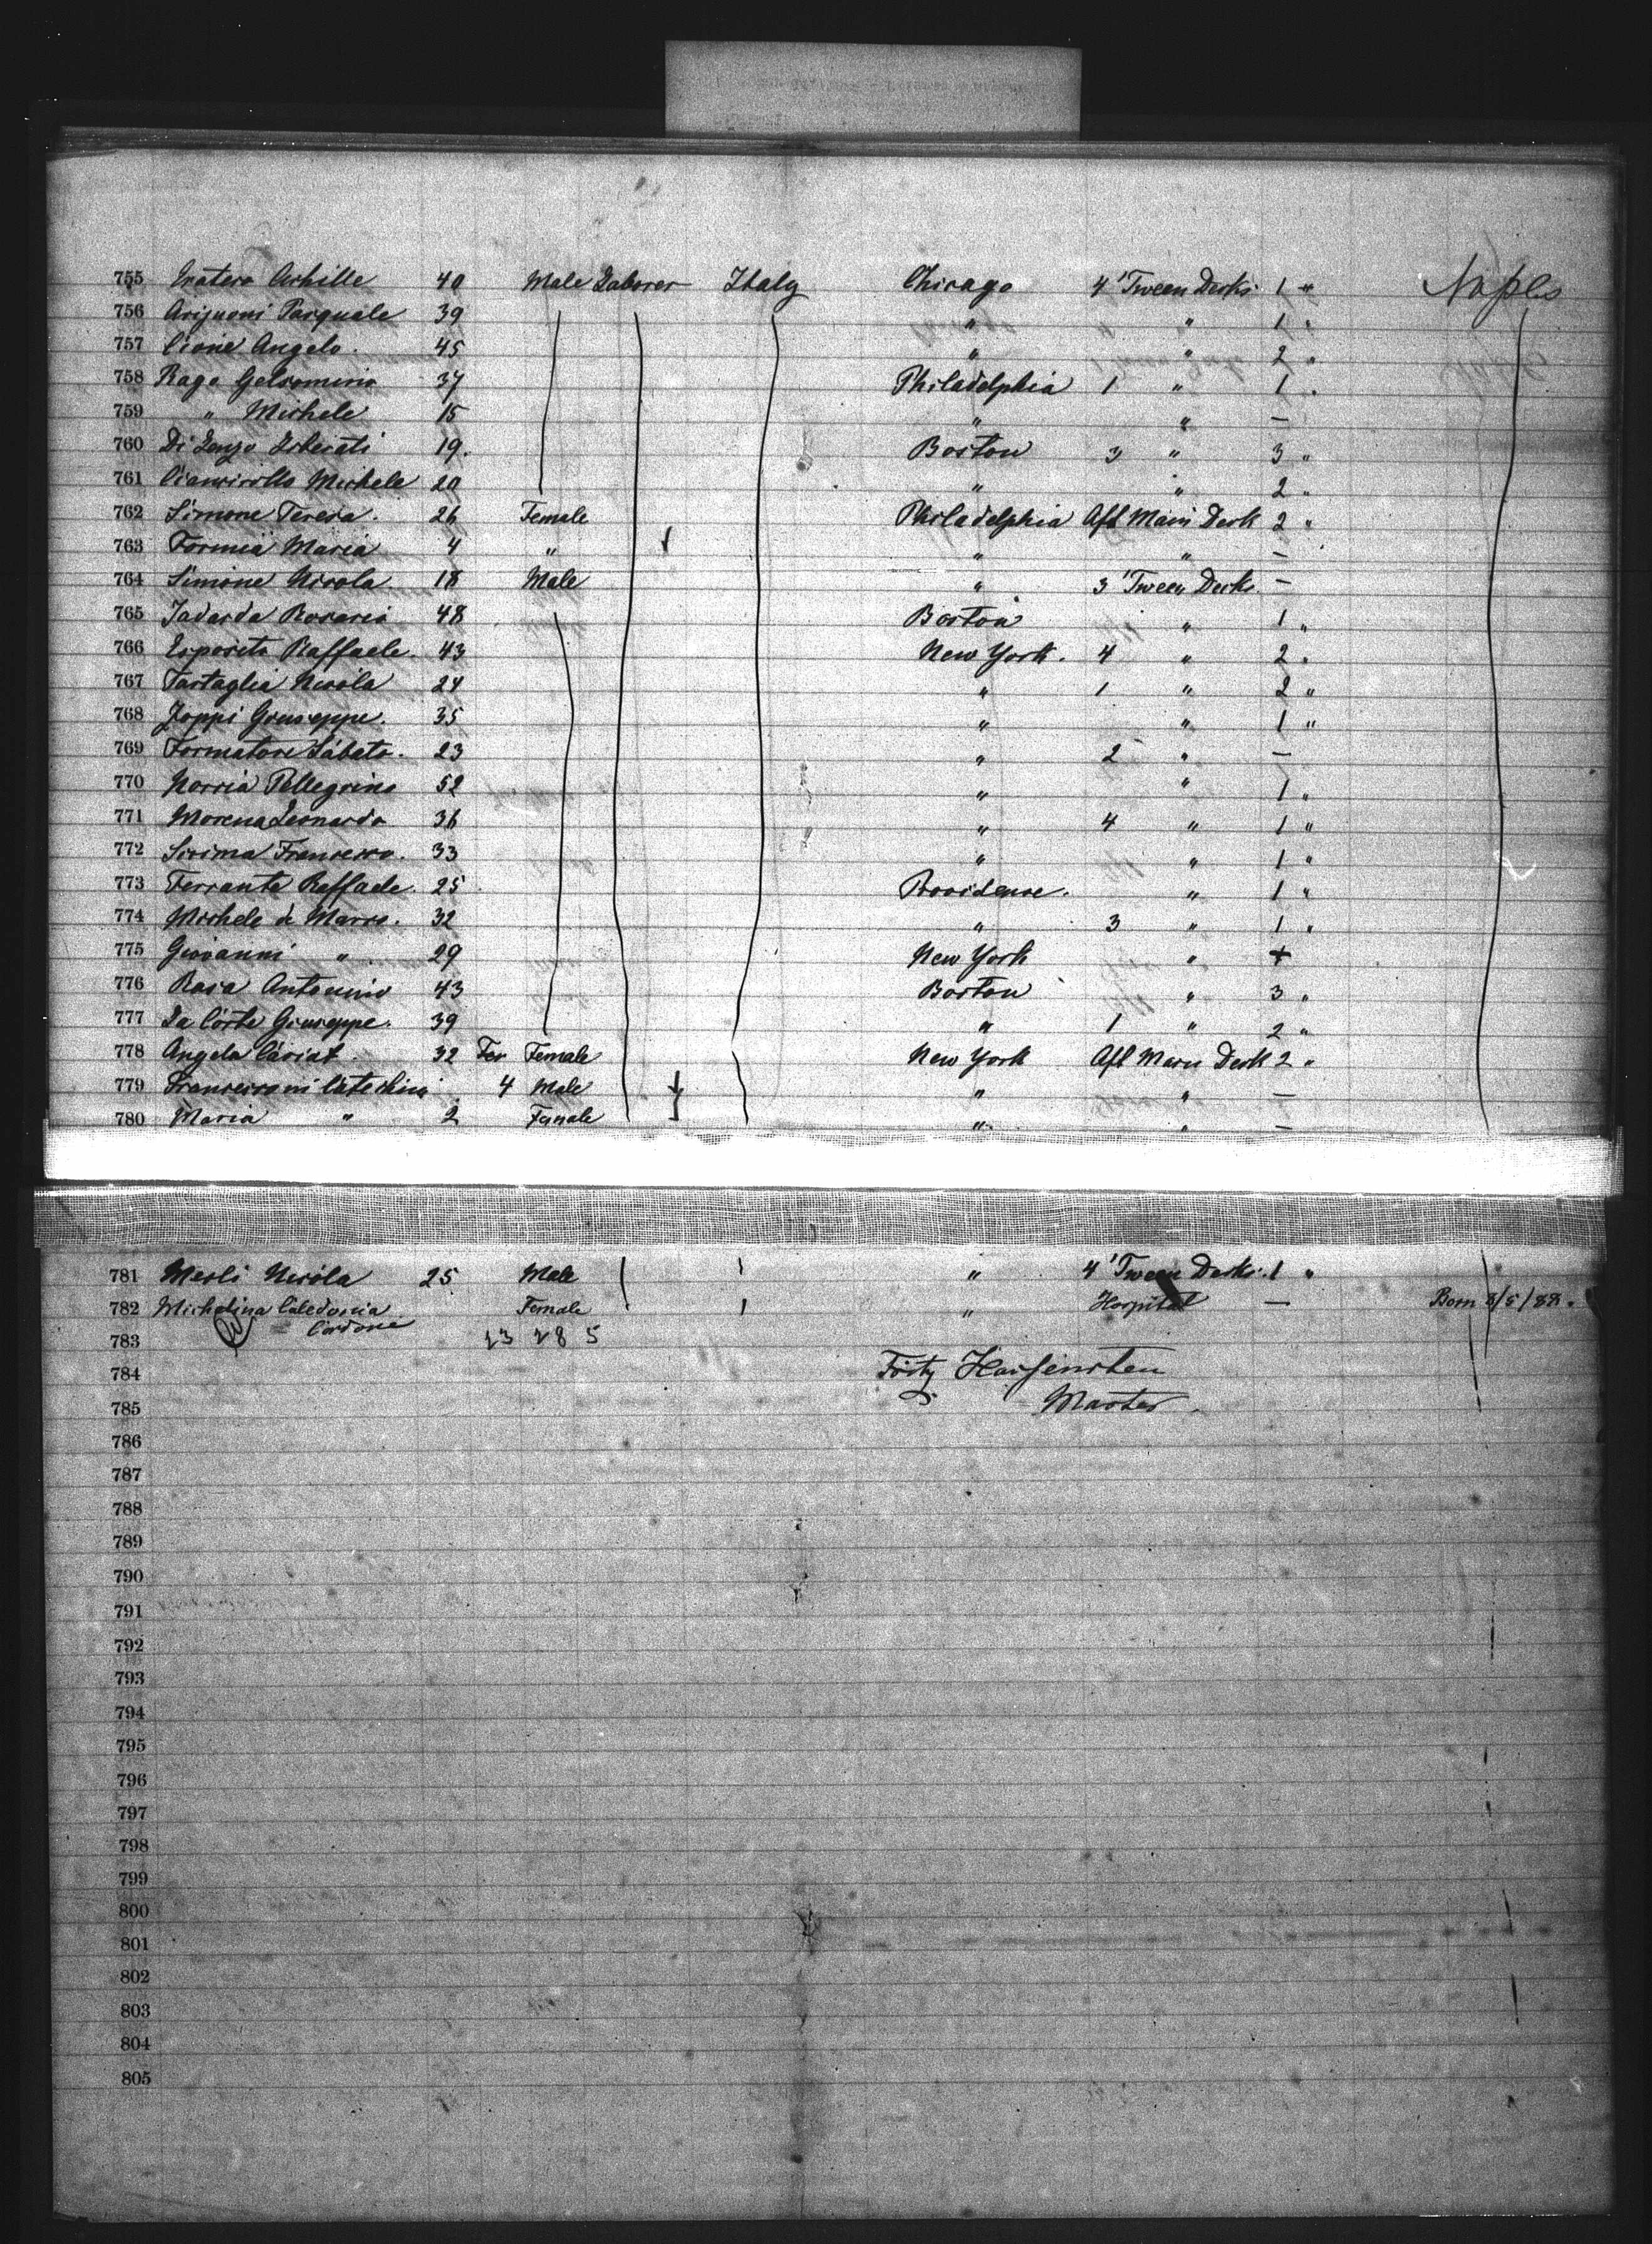 755 Iratero Achille 40 Male Laborer Italy Chicago 4 'Tween Decks 1 " Naples
756 Arignoni Pasquale 39 " " 1 "
757 Cione Angelo. 45 " " 2 "
758 Rago Gelsomino 37 Philadelphia 1 " 1 "
759 " Michele 15 " " —
760 Di Lenzo Liberati 19. Boston 3 " 3 "
761 Michele 20 " " 2 "
762 Simone Teresa. 26 Female Philadelphia Aft Main Deck 2 "
763 Formia Maria 4 " " " —
764 Simone Nicola 18 Male " 3 'Tween Decks —
765 Rosario 48 Boston " 1 "
766 Esposito Raffaele. 43 New York. 4 " 2 "
767 Tartaglia Nicola 24 " 1 " 2 "
768 Zoppi Giuseppe. 35 " " 1 "
769 Formatore Sabato. 23 " 2 " —
770 Norria Pellegrino 52 " " 1 "
771 Morena Leonardo 36 " 4 " 1 "
772 Sirima Francesco. 33 " " 1 "
773 Ferrante Raffaele. 25 Providence. " 1 "
774 Michele de Marco. 32 " 3 " 1 "
775 Giovanni " 29 New York "
776 Rosa Antonino 43 Boston " 3 "
777 La Corte Giuseppe. 39 " 1 " 2 "
778 Angela 32 Female New York Aft Main Deck 2 "
779 4 Male " " —
780 Maria " 2 Female " " —
781 Merli Nicola 25 Male " 4 'Tween Decks. 1 "
782 Michelina Caledonia Female " Hospital — Born 8/5/88.
Cordone
783 23 28 5
784 Fritz
785 Master
786
787
788
789
790
791
792
793
794
795
796
797
798
799
800
801
802
803
804
805